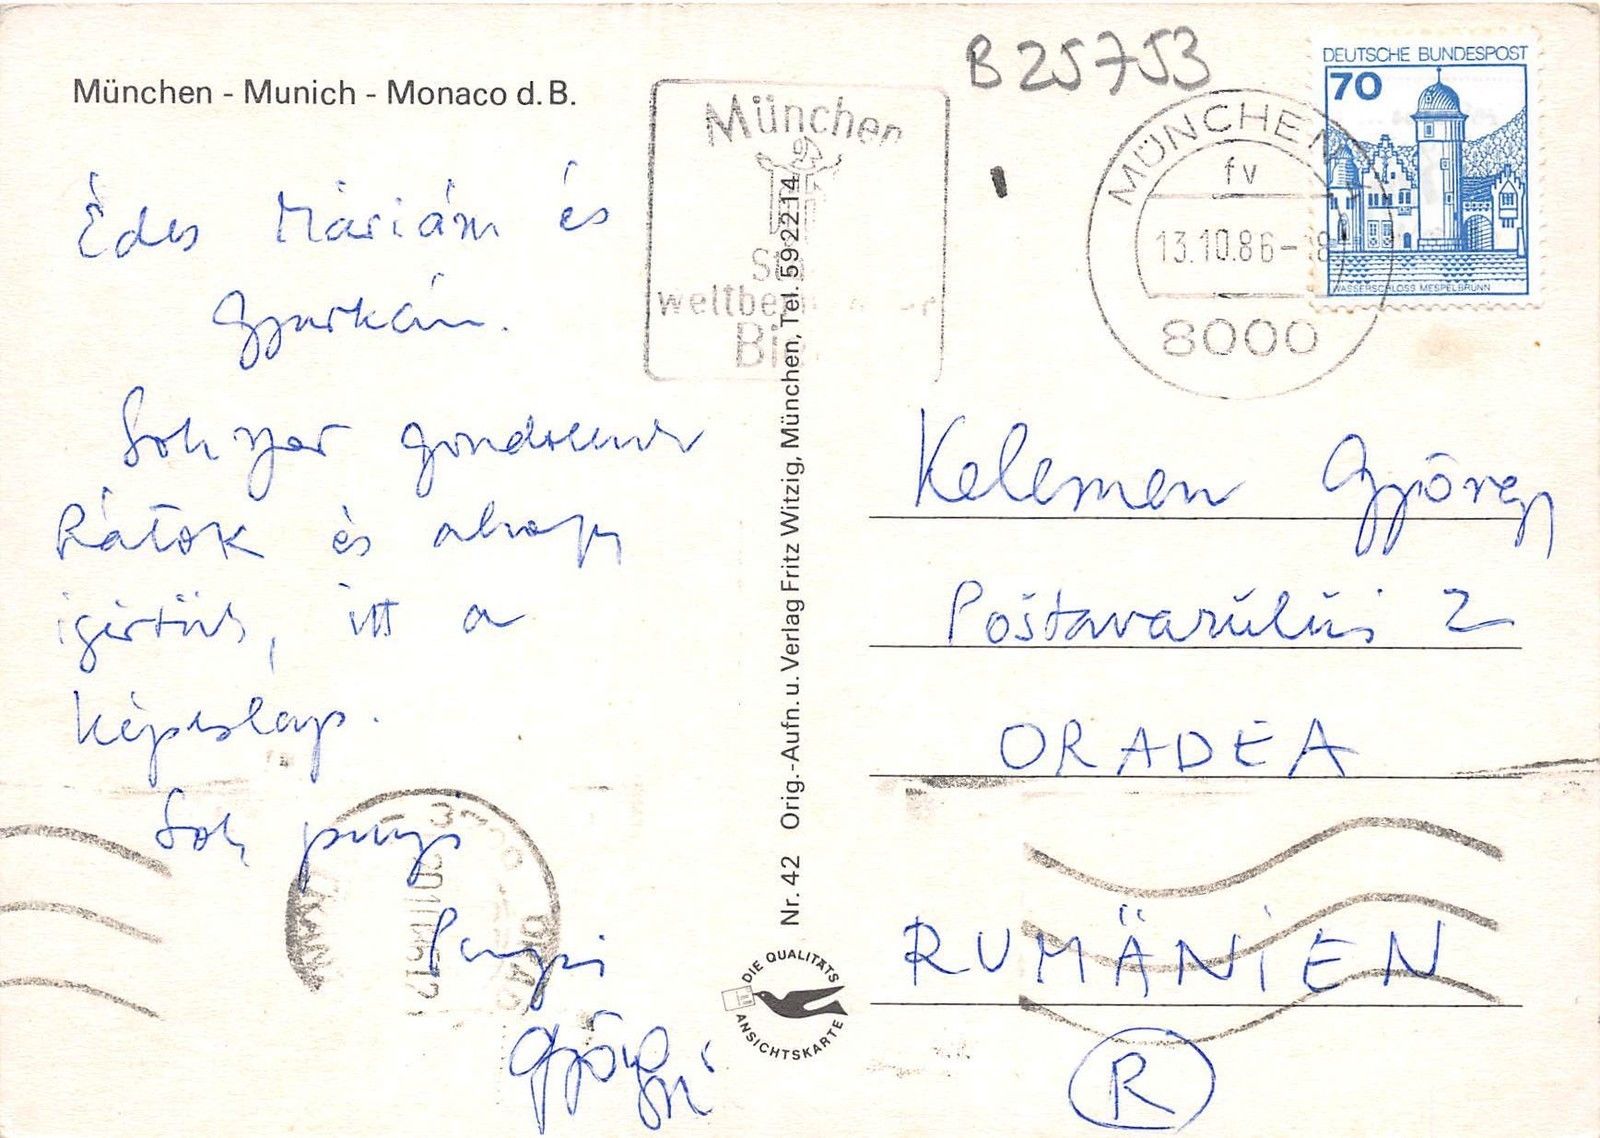 München - Munich - Monaco d. B.
B 25753
DEUTSCHE BUNDESPOST
70
WASSERSCHLOSS MESPELBRUNN
München
weltbe
MÜNCHEN
fv
13.10.86-18
8000
Édes Máriám és
Gyurkám.
Sokszor gondolunk
Rátok és ahogy
ígértük, itt a
képeslap.
Sok puszi
György
Orig.-Aufn. u. Verlag Fritz Witzig, München, Tel. 59 22 14
Nr. 42
DIE QUALITÄTS
ANSICHTSKARTE
Kelemen György
Postavarului 2
ORADEA
RUMÄNIEN
R